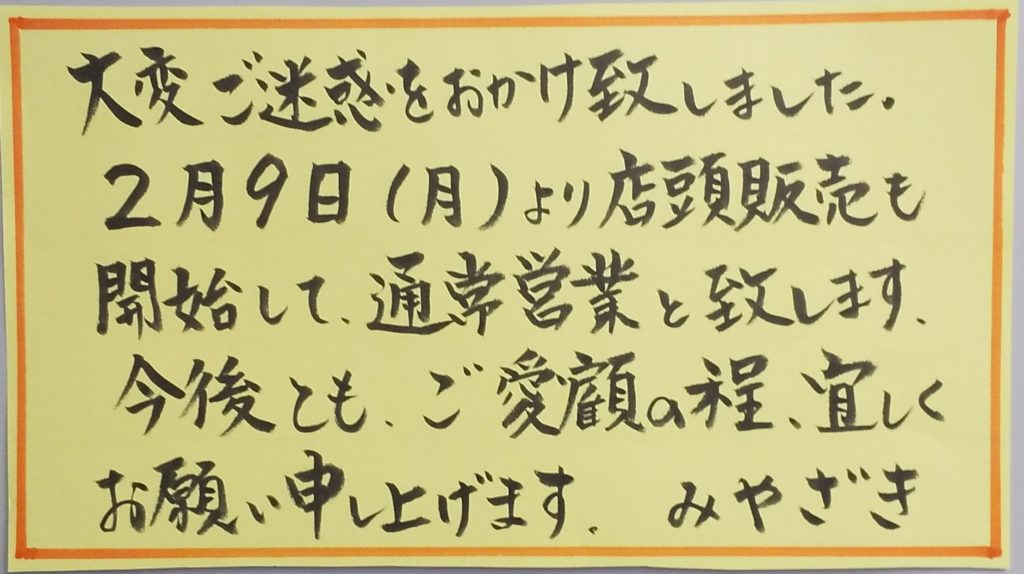 大変ご迷惑をおかけ致しました。
2月9日(月)より店頭販売も
開始して、通常営業と致します。
今後とも、ご愛顧の程、宜しく
お願い申し上げます。 みやざき